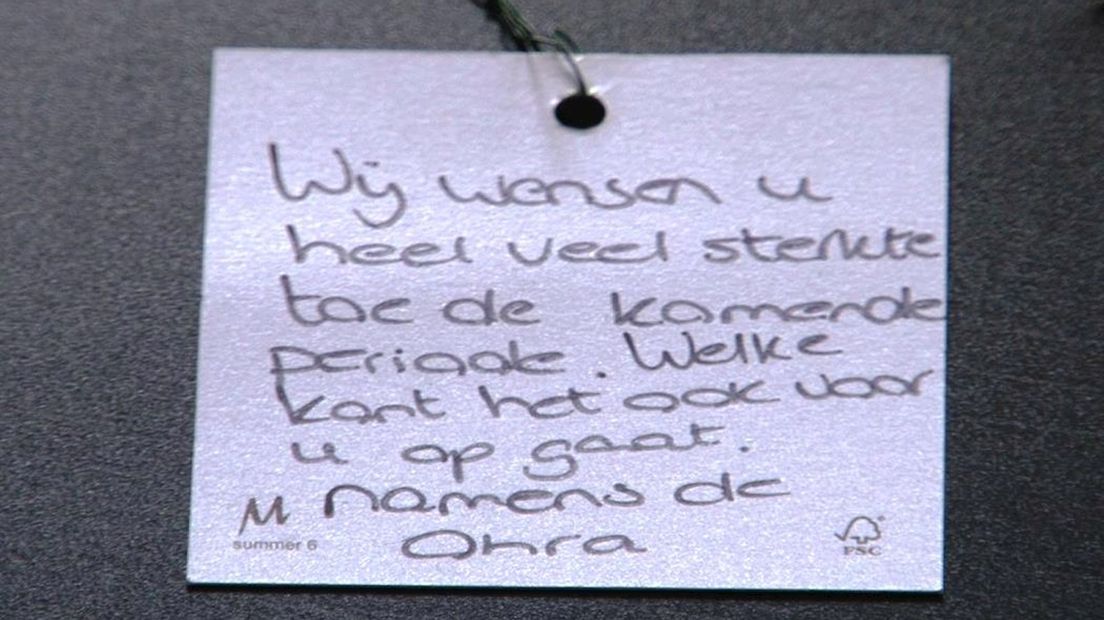 Wij wensen u
heel veel sterkte
toe de komende
periode. Welke
kant het ook voor
u op gaat.
namens de
Ohra
M
summer 6
FSC